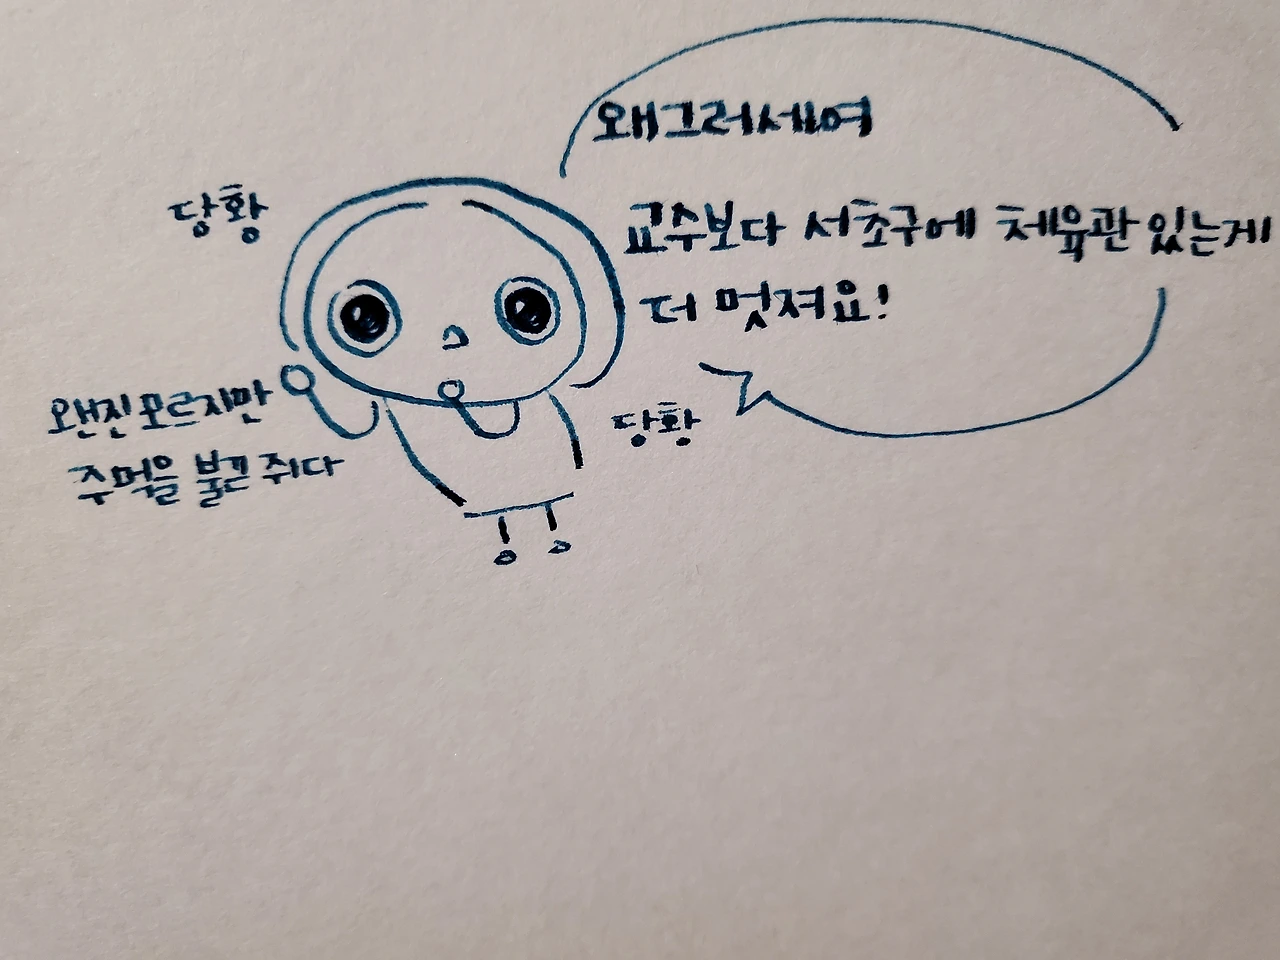 왜그러세여
당황
교수보다 서초구에 체육관 있는게
더 멋져요!
왠진모르지만
주먹을 불끈 쥐다
당황